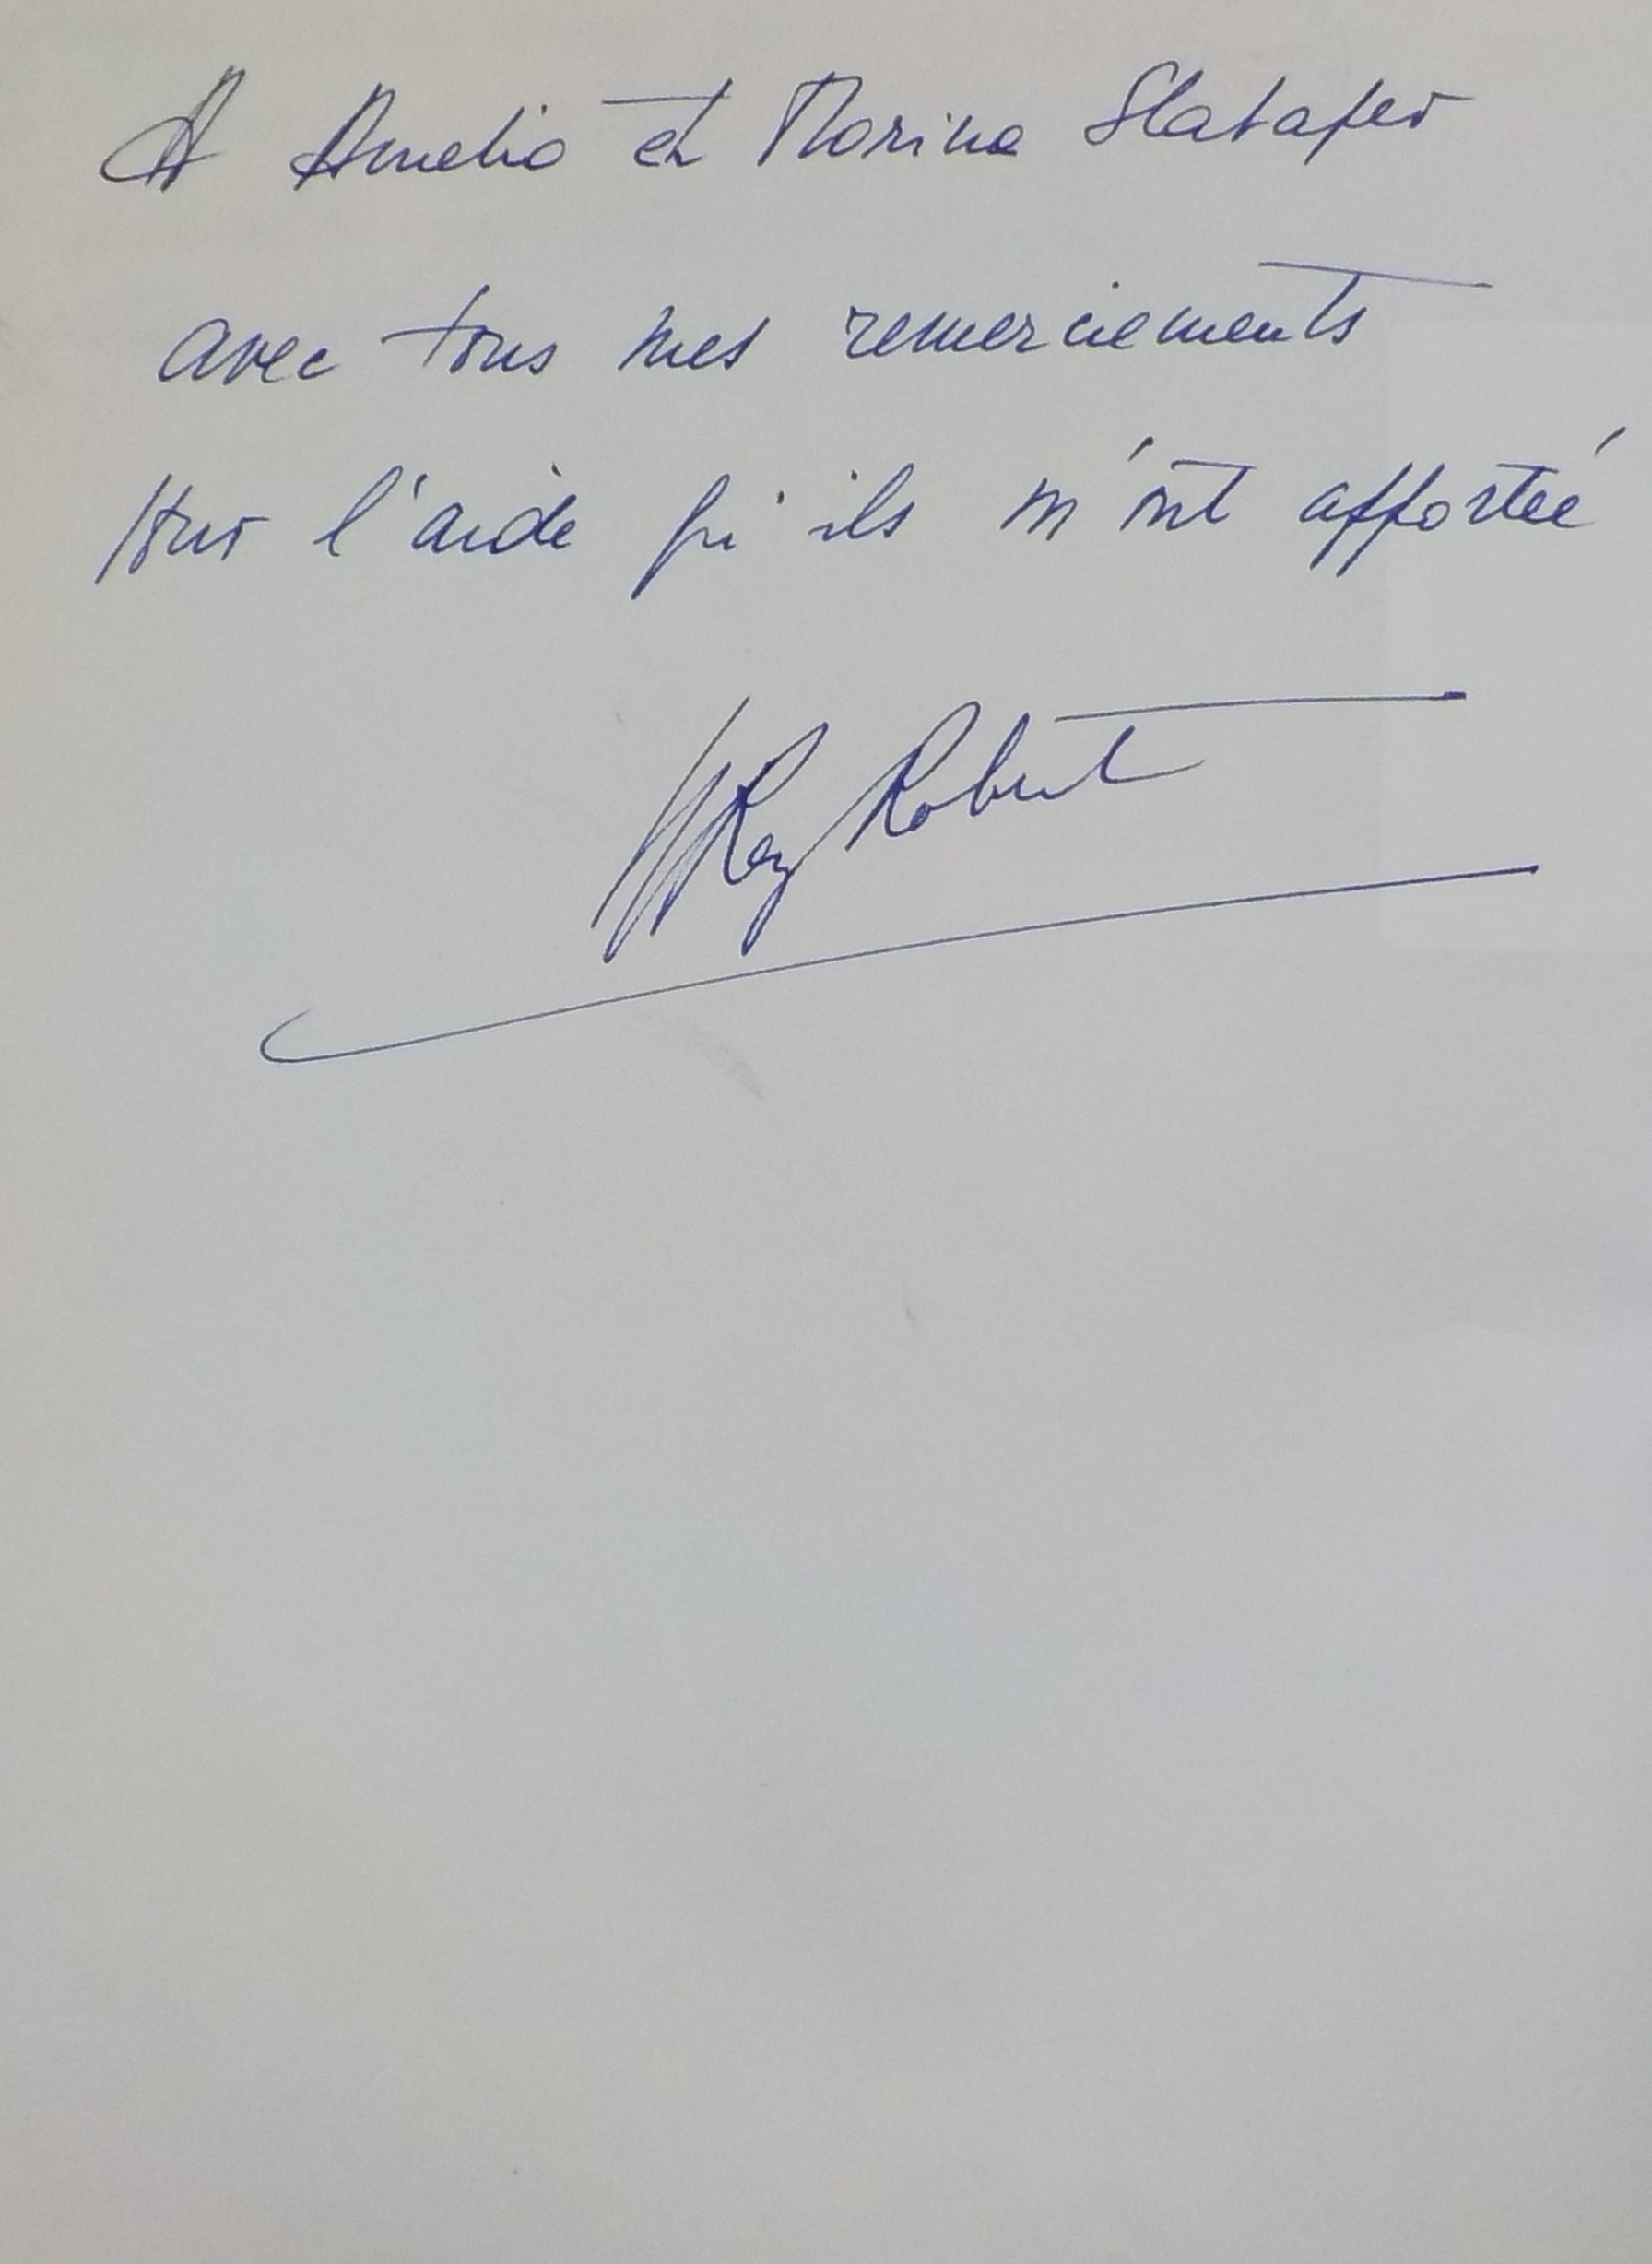 A Amelio et Marina Slataper
avec tous mes remerciements
pour l'aide qu'ils m'ont apportée
Rey Robert